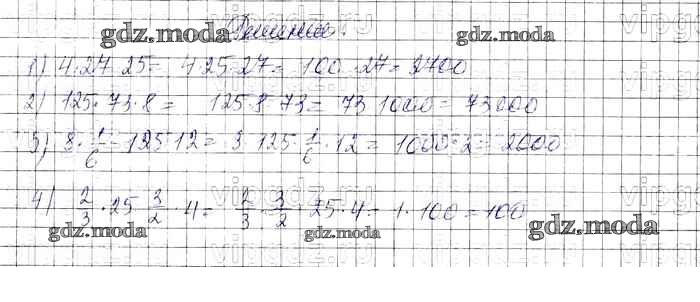 Решение:
1) 4·27·25= 4·25·27= 100·27= 2700
2) 125·73·8= 125·8·73= 73·1000= 73000
3) 8·1/6·125·12= 8·125·1/6·12= 1000·2= 2000
4) 2/3·25·3/2·4= 2/3·3/2·25·4= 1·100=100
gdz.moda
gdz.moda
gdz.moda
gdz.moda
gdz.moda
vipgdz
vipgdz.